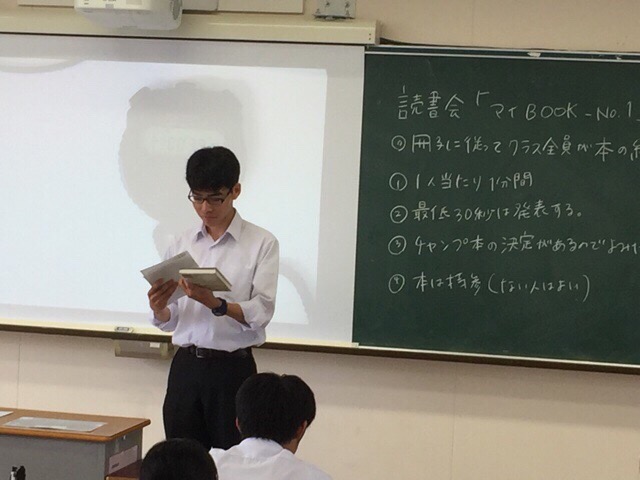 読書会「マイBOOK-No.1」
⓪ 冊子に従ってクラス全員が本の
① 1人当たり1分間
② 最低30秒は発表する。
③ チャンプ本の決定があるので
④ 本は持参(ない人はよい)